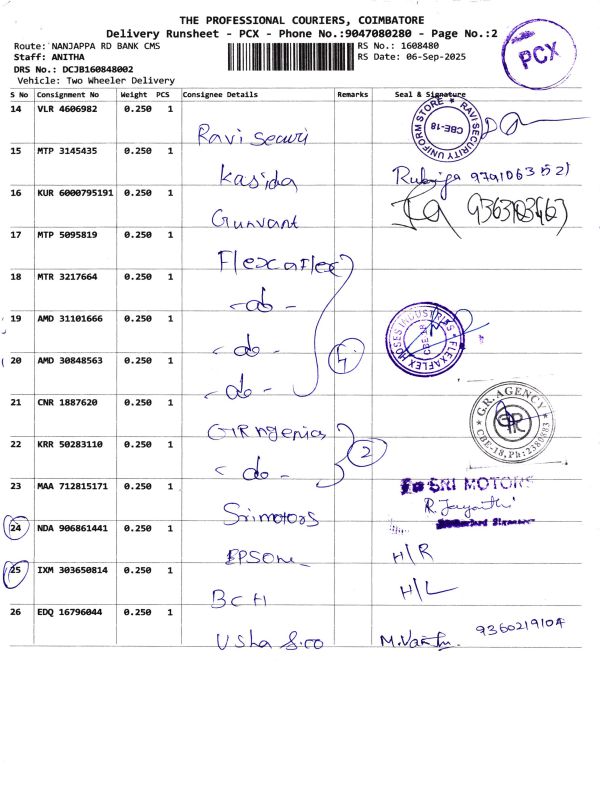 THE PROFESSIONAL COURIERS, COIMBATORE
Delivery Runsheet - PCX - Phone No.:9047080280 - Page No.:2
PCX
Route: NANJAPPA RD BANK CMS
RS No.: 1608480
Staff: ANITHA
RS Date: 06-Sep-2025
DRS No.: DCJB160848002
Vehicle: Two Wheeler Delivery
S No Consignment No Weight PCS Consignee Details Remarks Seal & Signature
14 VLR 4606982 0.250 1
Ravi Securi
RAVI SECURITY UNIFORM STORE
CBE-18
15 MTP 3145435 0.250 1
Kasida
9791063521
16 KUR 6000795191 0.250 1
Gunvant
17 MTP 5095819 0.250 1
Flexaflex
18 MTR 3217664 0.250 1
- do -
19 AMD 31101666 0.250 1
- do -
FLEXAFLEX HOSES INDUSTRIES
CBE-18
4
20 AMD 30848563 0.250 1
- do -
21 CNR 1887620 0.250 1
G.R. AGENCY
CBE-18, Ph: 2380883
22 KRR 50283110 0.250 1
- do -
2
23 MAA 712815171 0.250 1
Sri motors
SRI MOTORS
R. Jayanthi
24 NDA 906861441 0.250 1
EPSON
H/R
25 IXM 303650814 0.250 1
BCH
H/L
26 EDQ 16796044 0.250 1
Usha & co
9360219104